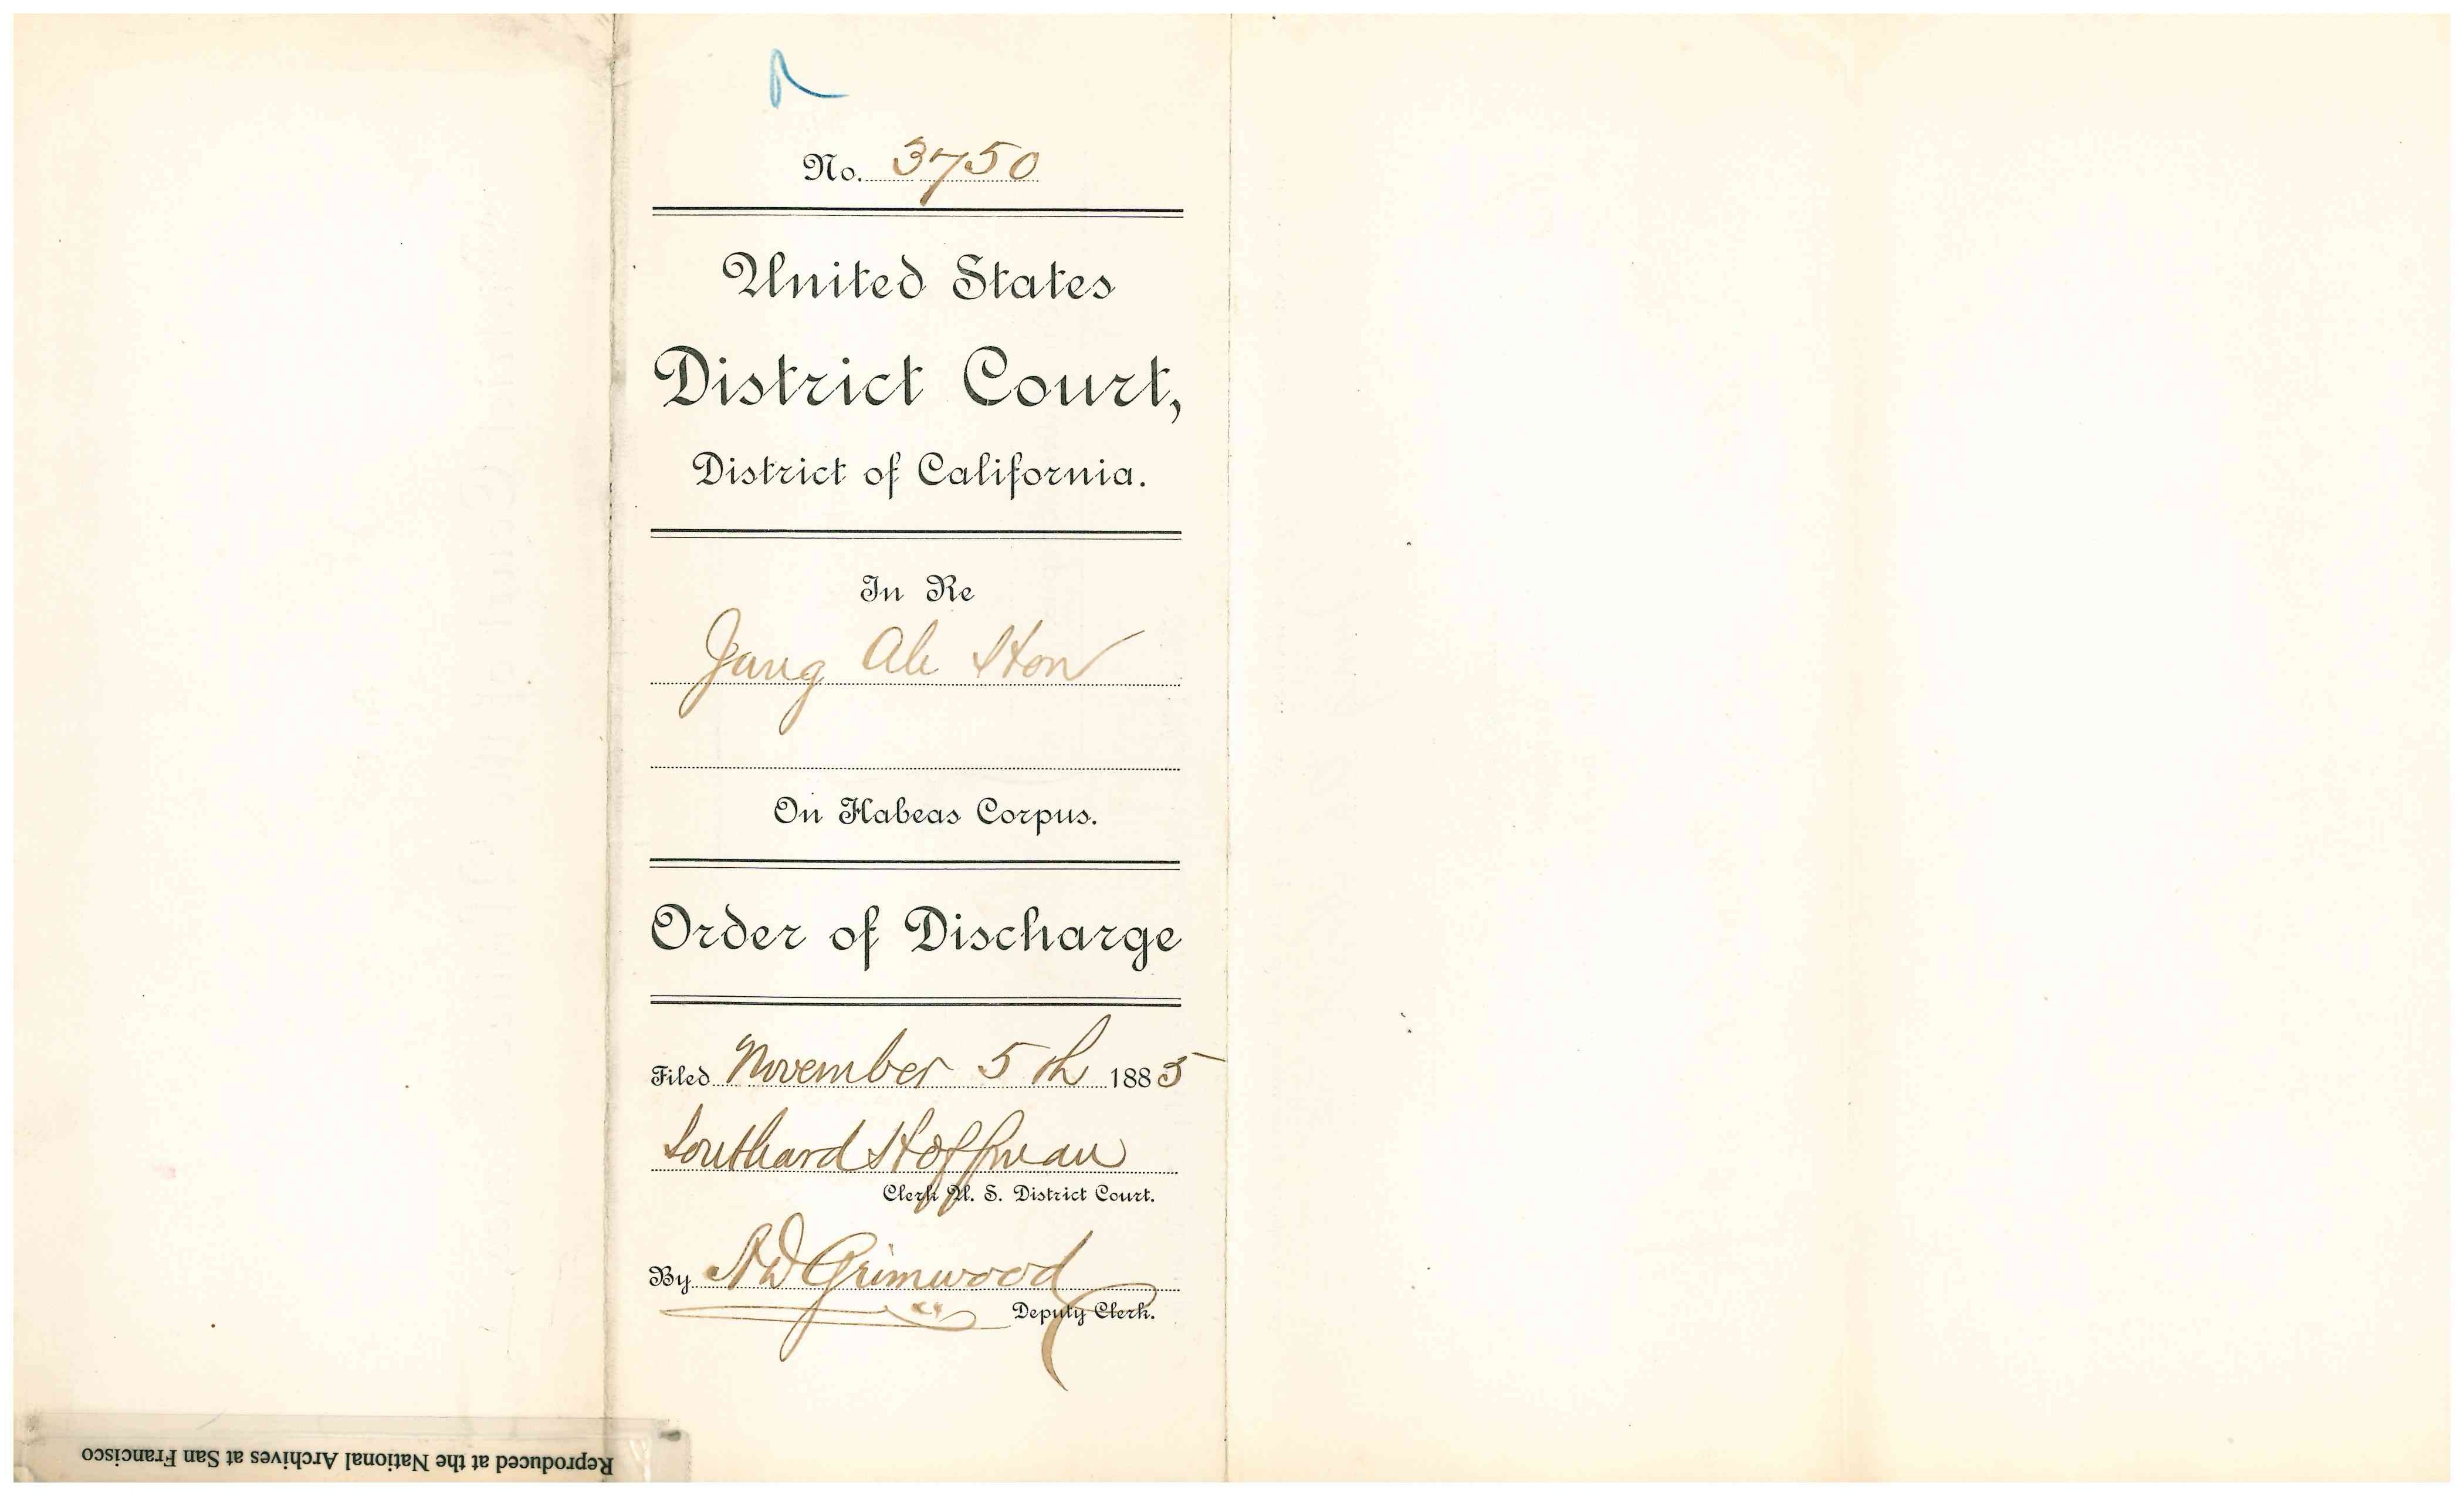 No. 3750
United States
District Court,
District of California.
In Re
Jang Ah Hon
On Habeas Corpus.
Order of Discharge
Filed November 5th 1885
Southard Hoffman
Clerk U. S. District Court.
By Grimwood
Deputy Clerk.
Reproduced at the National Archives at San Francisco